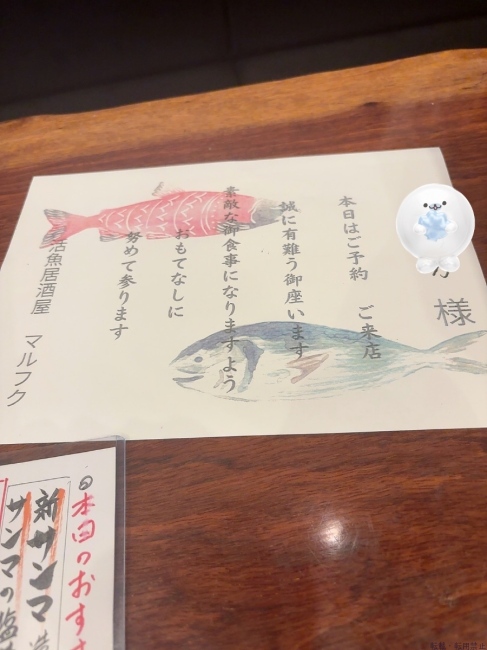 様
本日はご予約 ご来店
誠に有難う御座います
素敵な御食事になりますよう
おもてなしに
努めて参ります
活魚居酒屋 マルフク
本日のおす
新サンマ
サンマの塩